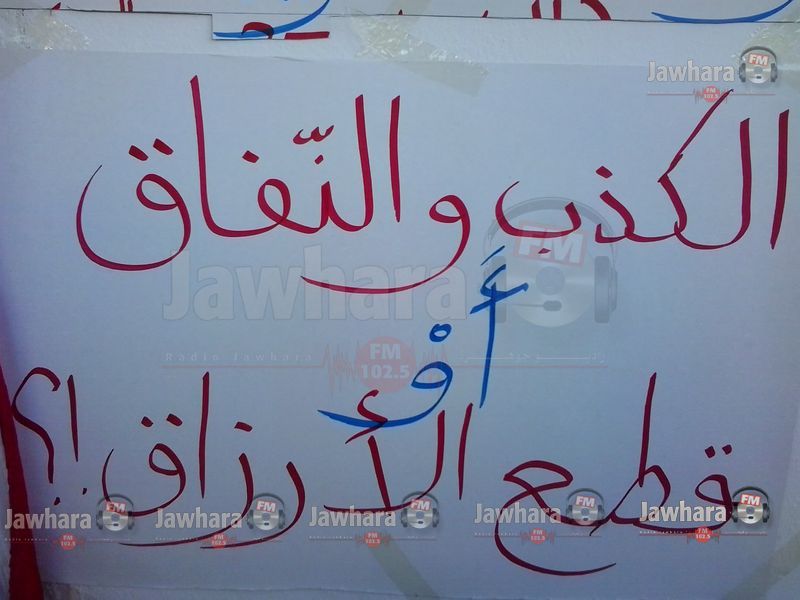 Jawhara FM 102.5
الكذب والنّفاق
أَوْ
Jawhara FM
Radio Jawhara FM 102.5 راديو جوهرة
قطع الأرزاق !؟
Jawhara FM 102.5
Jawhara FM 102.5
Jawhara FM 102.5
Jawhara FM 102.5
Jawhara FM 102.5